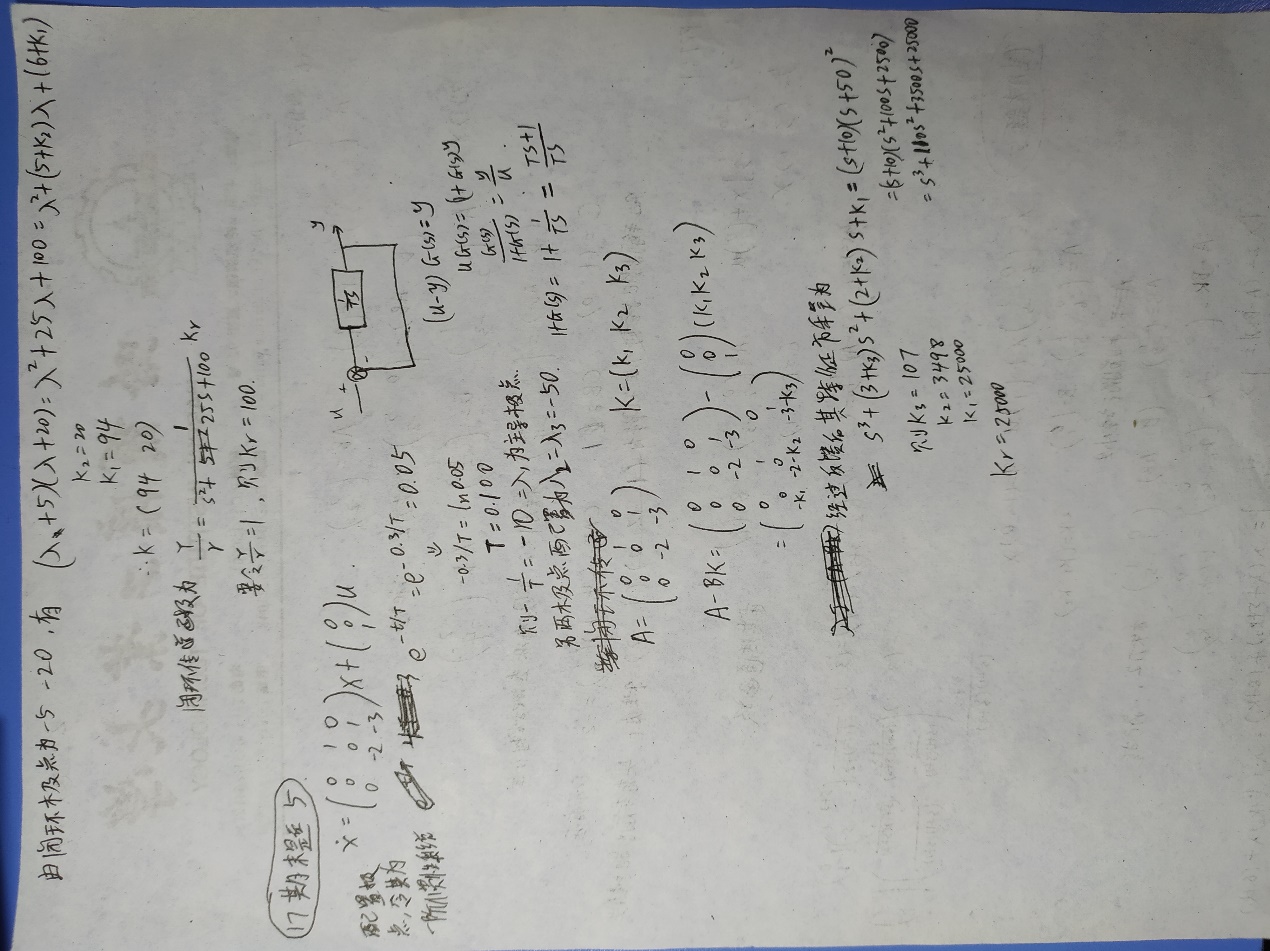 由闭环极点为-5 -20,有 (λ+5)(λ+20)=λ²+25λ+100=λ²+(5+K₂)λ+(6+K₁)
K₂=20
K₁=94
∴K=(94 20)
闭环传递函数为 Y/r = 1/(s²+25s+100) Kr
要令Y/r=1,则Kr=100.
17期末题5
ẋ=(0 1 0; 0 0 1; 0 -2 -3)x+(0; 0; 1)u
配置极点,令其为一阶惯性系统
e^(-t/T)=e^(-0.3/T)=0.05
-0.3/T=ln0.05
T=0.100
则-1/T=-10=λ₁为主导极点.
另两极点配置为λ₂=λ₃=-50.
u + - 1/TS y
(u-y)G(s)=y
uG(s)=(1+G(s))y
G(s)/(1+G(s))=y/u
1+G(s)=1+1/TS=(TS+1)/TS
A=(0 1 0; 0 0 1; 0 -2 -3) K=(K₁ K₂ K₃)
A-BK=(0 1 0; 0 0 1; 0 -2 -3)-(0; 0; 1)(K₁ K₂ K₃)
=(0 1 0; 0 0 1; -K₁ -2-K₂ -3-K₃)
经过反馈后其特征方程为
s³+(3+K₃)s²+(2+K₂)s+K₁=(s+10)(s+50)²
=(s+10)(s²+100s+2500)
=s³+110s²+3500s+25000
则K₃=107
K₂=3498
K₁=25000
Kr=25000